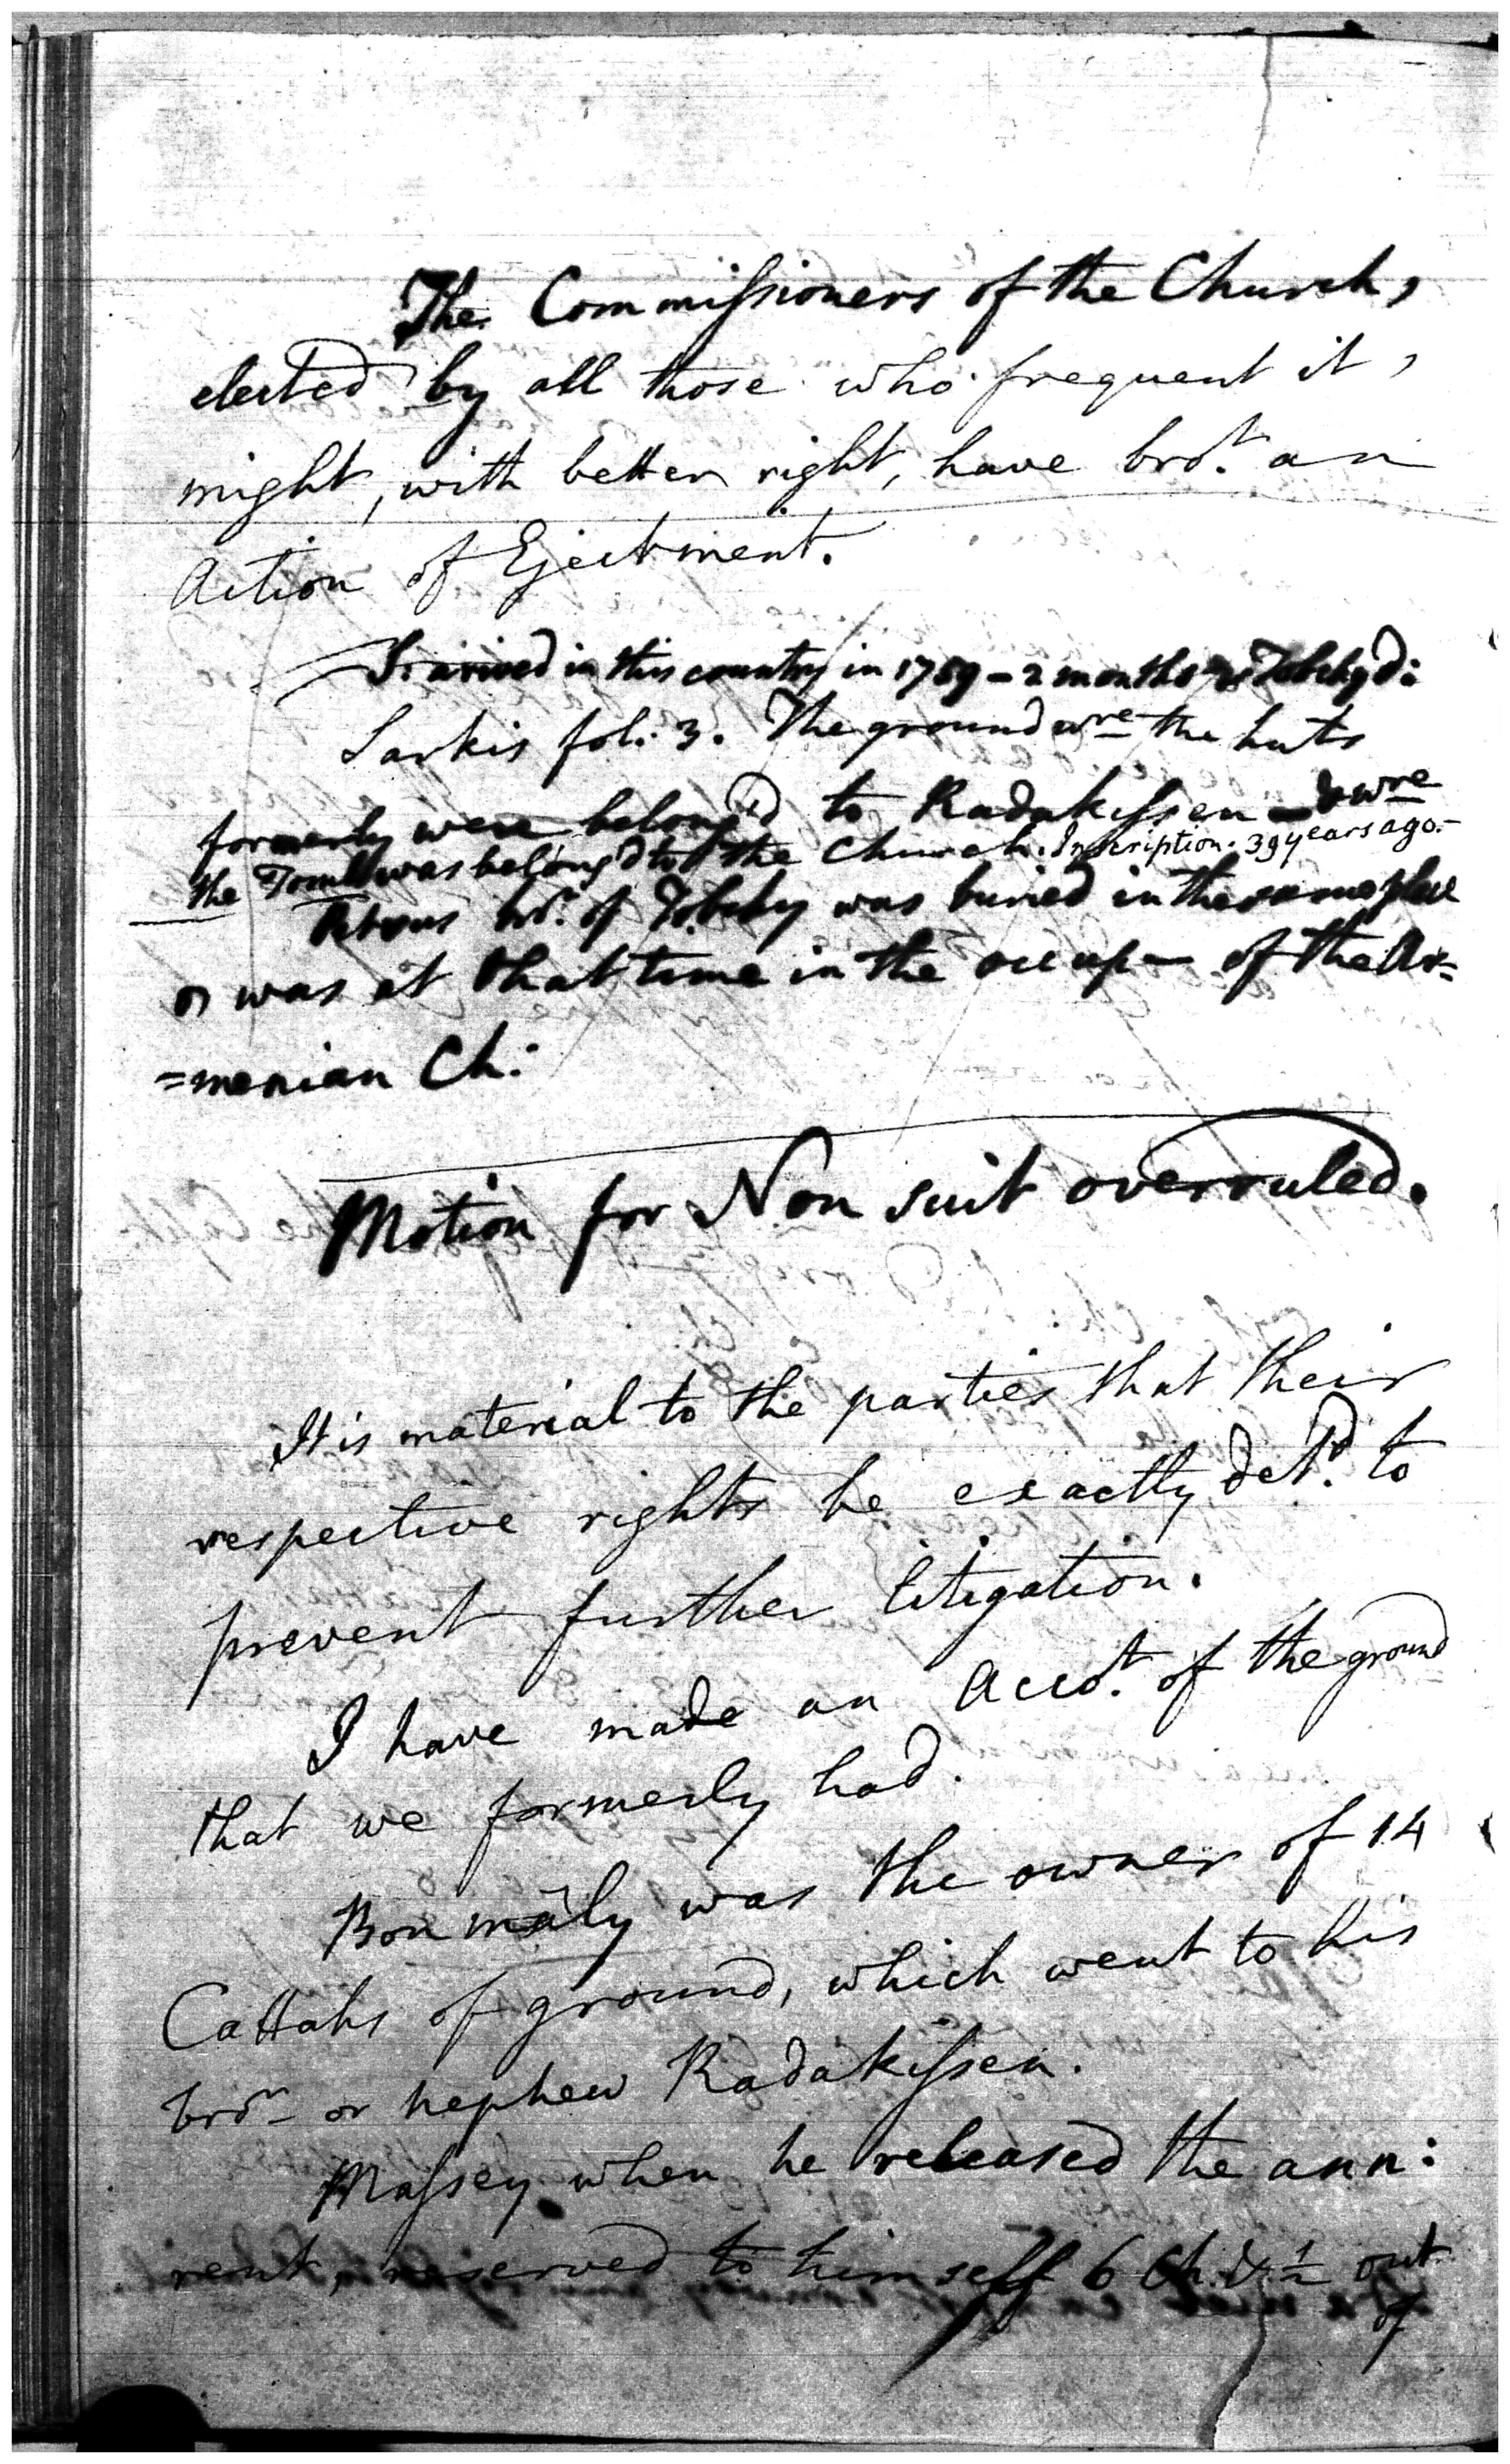 The Commissioners of the Church,
elected by all those who frequent it,
might, with better right, have brot. an
Action of Ejectment.
I arived in this country in 1759 – 2 months Tobeky d:
Sarkis fol. 3. The ground wre the huts
formerly were belong'd to Radakissen – & wre
the Tomb was belong'd to the Church. Inscription. 39 years ago. –
Petrous br. of Tobeky was buried in the same place
& was at that time in the occup– of the Ar=
=menian Ch:
Motion for Non suit overruled.
It is material to the parties that their
respective rights be exactly detd. to
prevent further litigation.
I have made an Accot. of the ground
that we formerly had.
Bon mály was the owner of 14
Cattahs of ground, which went to his
bror– or nephew Radakissen.
Massey when he released the ann:
rent, reserved to himself 6 Ch. & ½ out
of